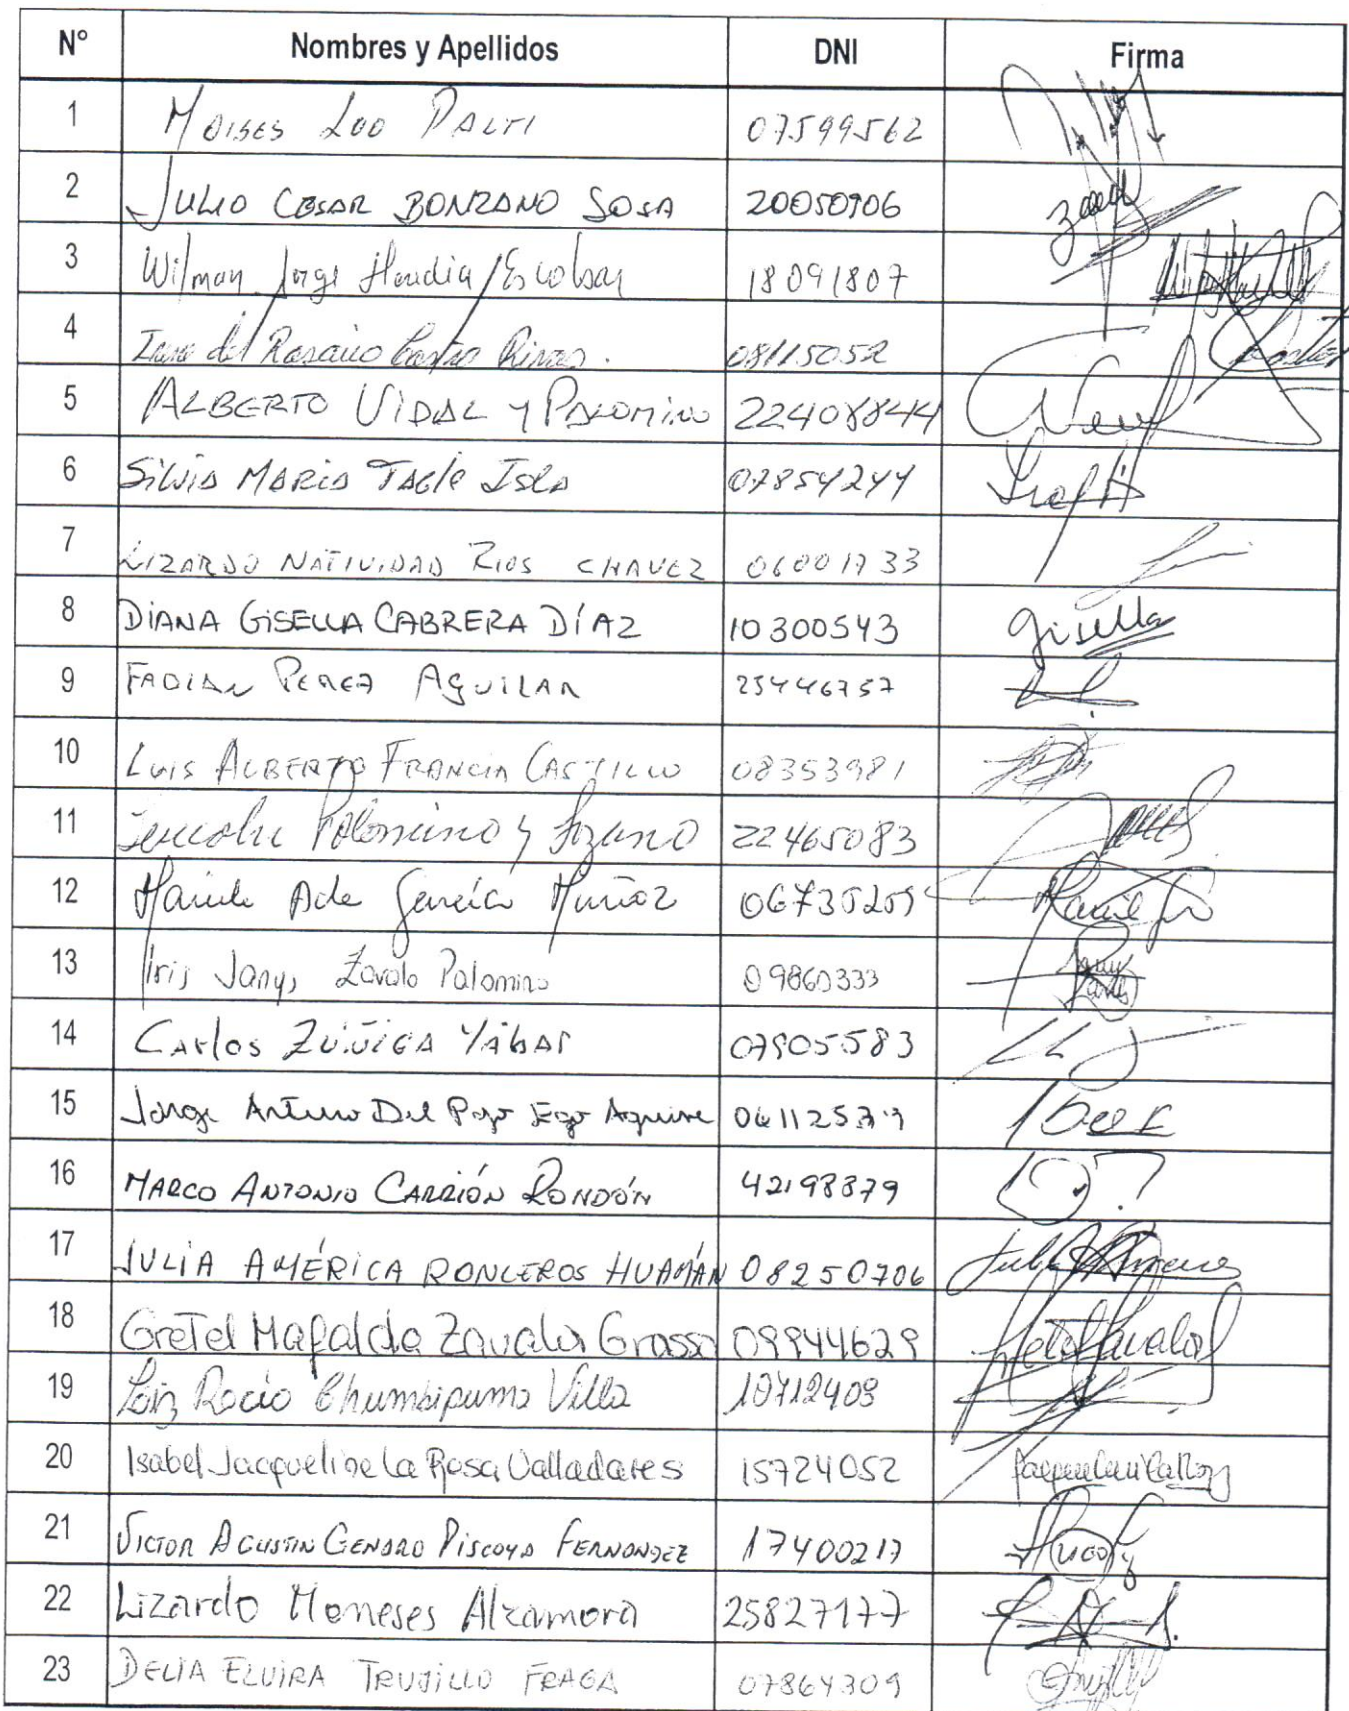 N° Nombres y Apellidos DNI Firma
1 MOISES LOO PALTI 07599562
2 JULIO CESAR BONZANO SOSA 20050906
3 Wilman Jorge Heudia Escobar 18091807
4 del Rosario Castro Rivas. 08115052
5 ALBERTO VIDAL Y PALOMINO 22408844
6 SILVIA MARIA TAGLE ISLA 07854244
7 LIZARDO NATIVIDAD RIOS CHAVEZ 06001733
8 DIANA GISELLA CABRERA DÍAZ 10300543 gisella
9 FABIAN PEREZ AGUILAR 25446757
10 LUIS ALBERTO FRANCIA CASTILLO 08353981
11 Palomino y Lozano 22465083
12 Ada García Muñoz
13 Iris Janys Zavala Palomino 09860333
14 CARLOS ZÚÑIGA YÁBAR 07905583
15 Jorge Arturo Del Pozo Ego Aguirre
16 MARCO ANTONIO CARRIÓN RONDÓN 42198879
17 JULIA AMÉRICA RONCEROS HUAMÁN 08250706
18 Gretel Mafalda Zavala Grasso 09944629
19 Rocio Chumbipuma Villa 10712409
20 Isabel Jacqueline La Rosa Valladares 15724052
21 VICTOR AGUSTIN GENARO PISCOYA FERNANDEZ 17400217
22 Lizardo Meneses Alzamora 25827177
23 DELIA ELVIRA TRUJILLO FRAGA 07864309